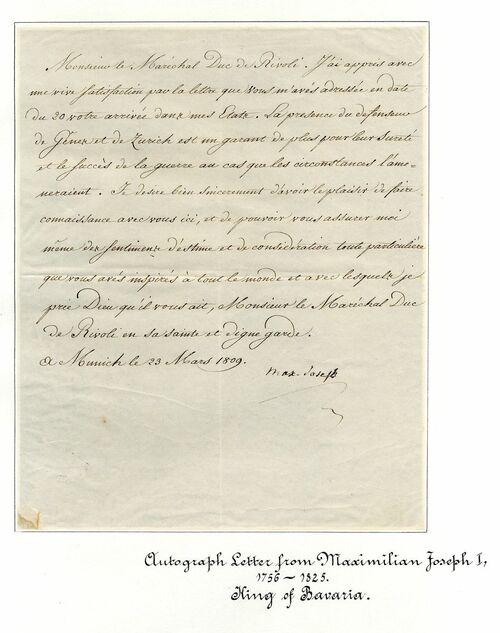 Monsieur le Maréchal Duc de Rivoli. J'ai appris avec
une vive satisfaction par la lettre que vous m'avés adressée en date
du 20 votre arrivée dans mes Etats. La presence du defenseur
de Gênes et de Zurich est un garant de plus pour leur sureté
et le succès de la guerre au cas que les circonstances l'ame-
neraient. Je desire bien sincerement d'avoir le plaisir de faire
connaissance avec vous ici, et de pouvoir vous assurer moi
même des sentimens d'éstime et de considération toute particulière
que vous avés inspirés à tout le monde et avec lesquels je
prie Dieu qu'il vous ait, Monsieur le Maréchal Duc
de Rivoli en sa sainte et digne garde.
à Munich le 23 Mars 1809.
Max. Joseph
Autograph Letter from Maximilian Joseph I,
1756 – 1825.
King of Bavaria.